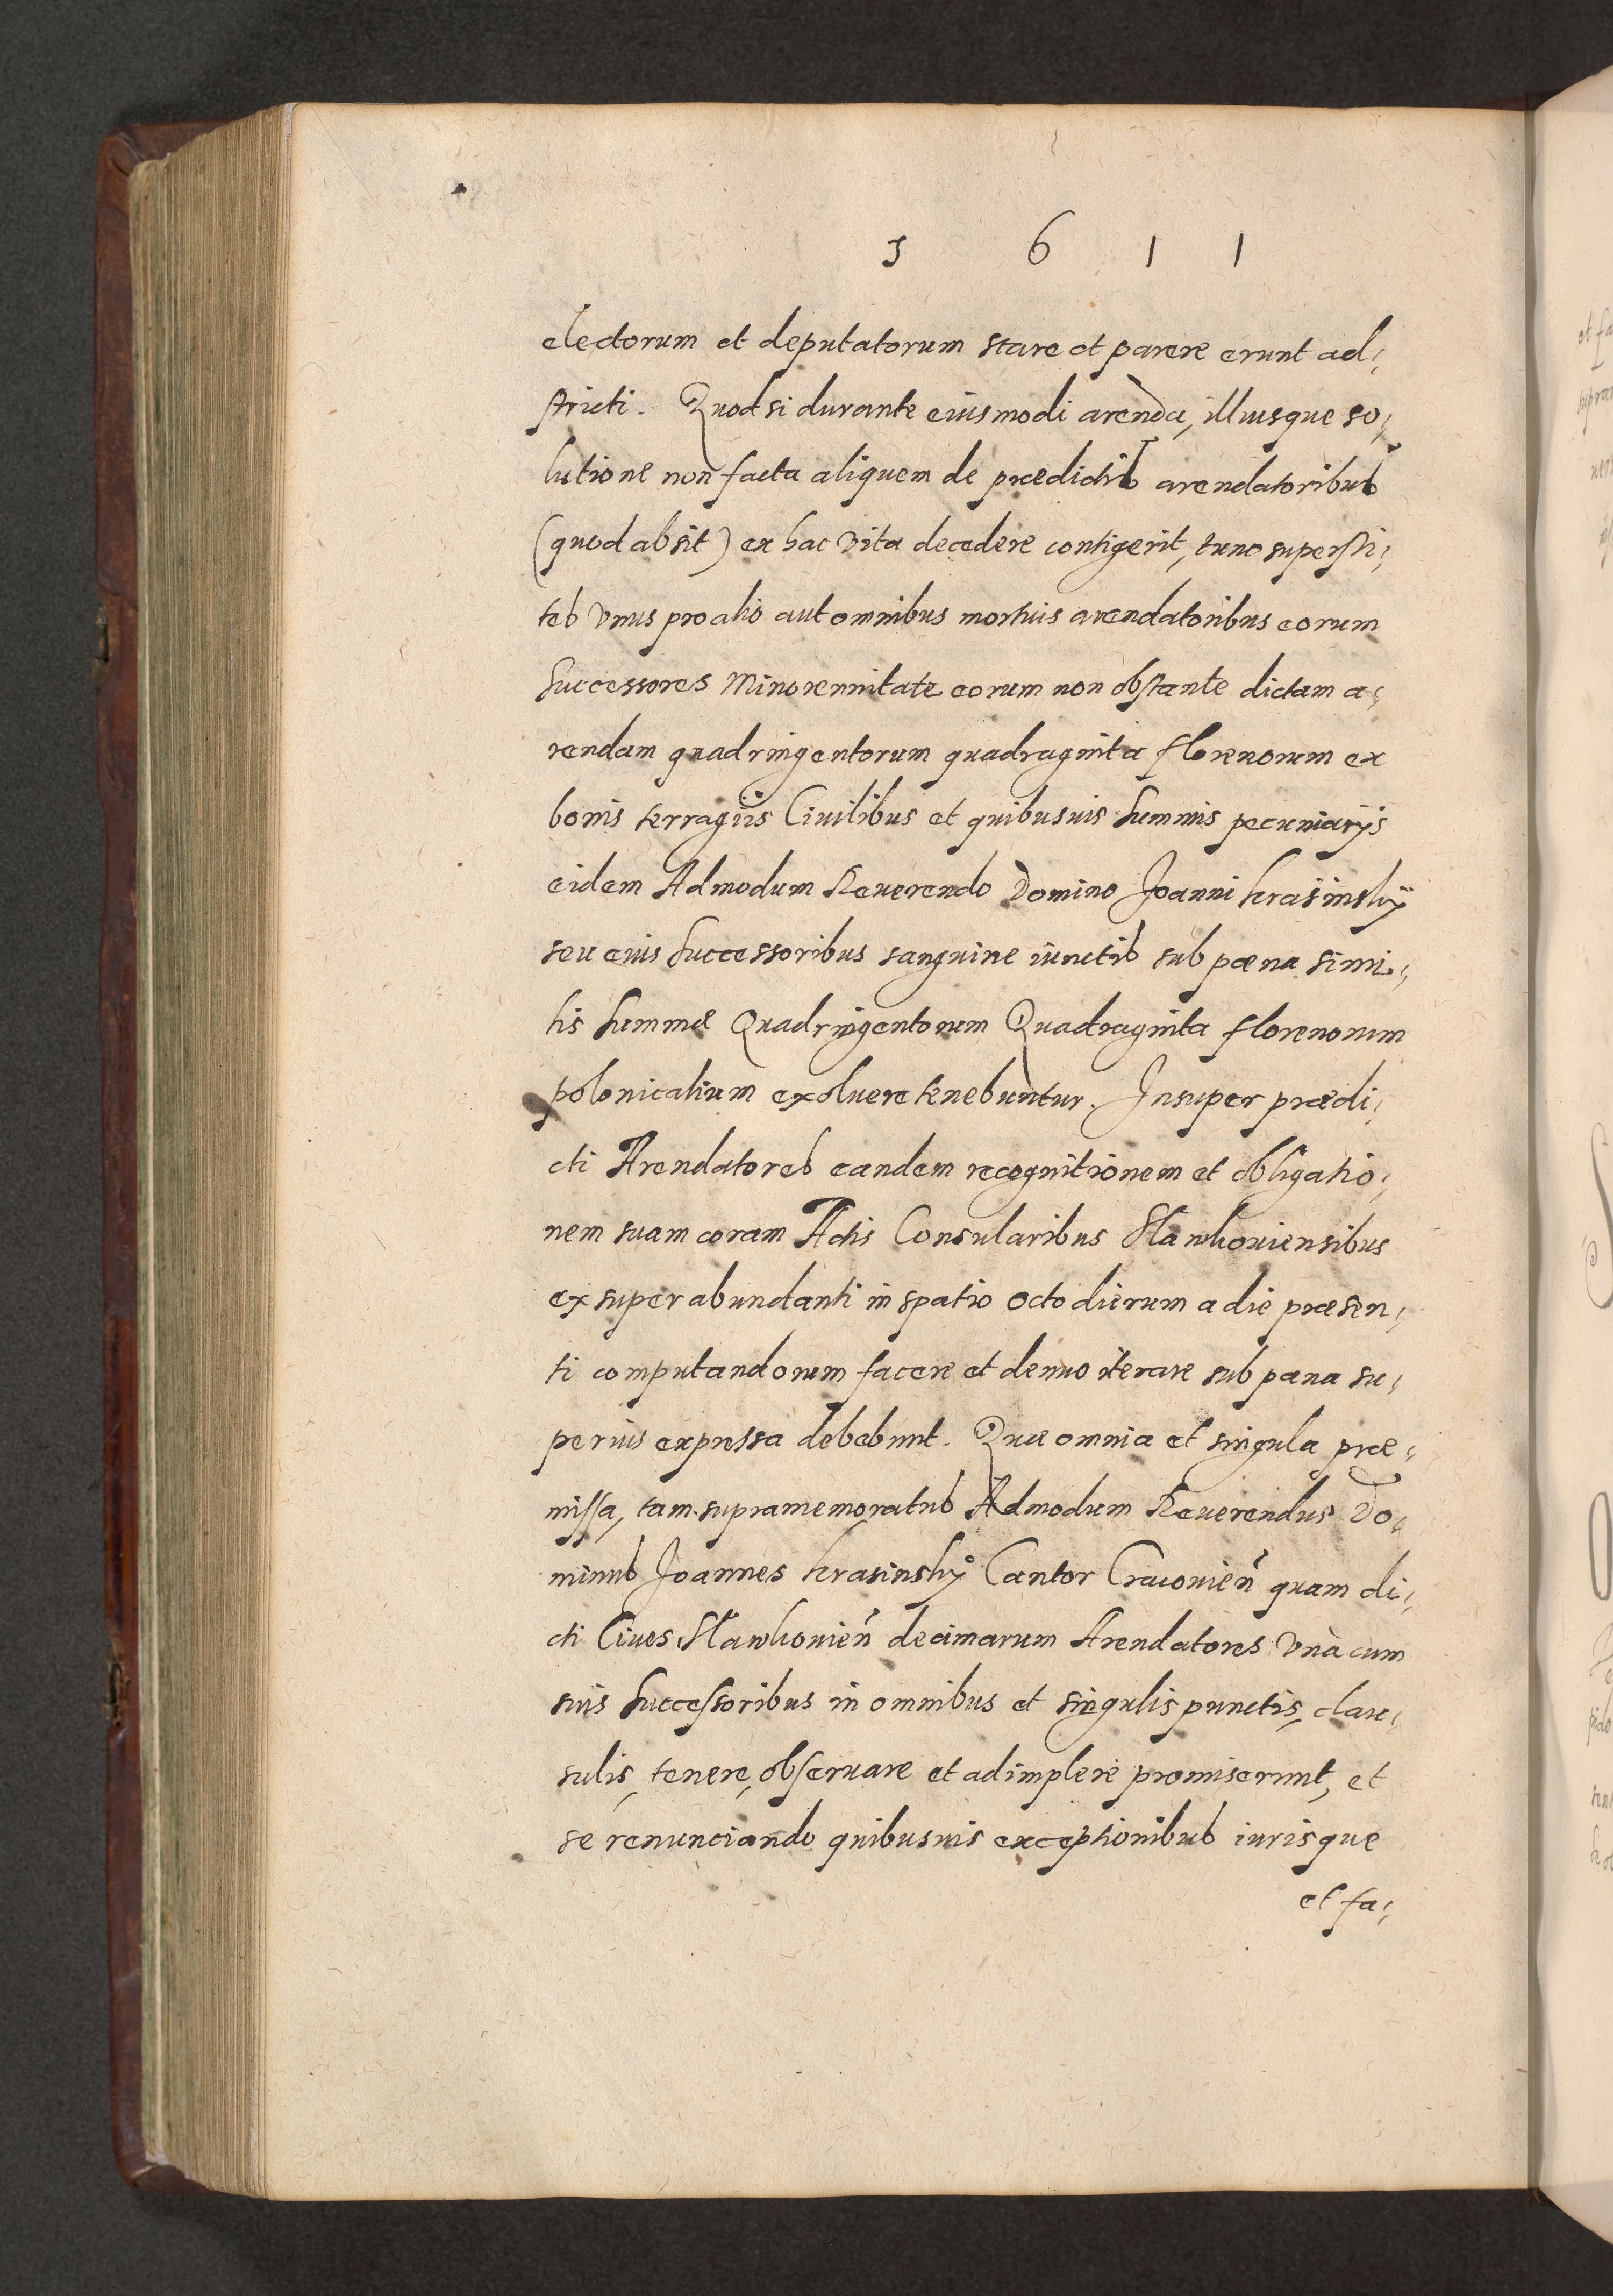 1 6 1 1
electorum et deputatorum stare et parere erunt ad,
stricti. Quod si durante eiusmodi arenda, illiusque so,
lutione non facta aliquem de prædictis arendatoribus
(quod absit) ex hac vita decedere contigerit, tunc supersti,
tes vnus pro alio aut omnibus mortuis arendatoribus eorum
successores Minorennitate eorum non obstante dictam a,
rendam quadringentorum quadraginta florenorum ex
bonis terragiis Ciuilibus et quibusuis summis pecuniarijs
eidem Admodum Reuerendo Domino Joanni Krasinsky
seu eius successoribus sanguine iunctis sub pœna simi,
lis summæ Quadringentorum Quadraginta florenorum
polonicalium exoluere tenebuntur. Insuper prædi,
cti Arendatores eandem recognitionem et obligatio,
nem suam coram Actis Consularibus Slawkouiensibus
ex superabundanti in spatio octo dierum a die præsen,
ti computandorum facere et denuo iterare sub pæna su,
perius expressa debebunt. Quæ omnia et singula præ,
missa, tam supramemoratus Admodum Reuerendus Do,
minus Joannes Krasinsky Cantor Cracouien̄ quam di,
cti Ciues Slawkouien̄ decimarum Arendatores vnà cum
suis successoribus in omnibus et singulis punctis, clau,
sulis, tenere, obseruare et adimplere promiserunt, et
se renunciando quibusuis exceptionibus iurisque
et fa,